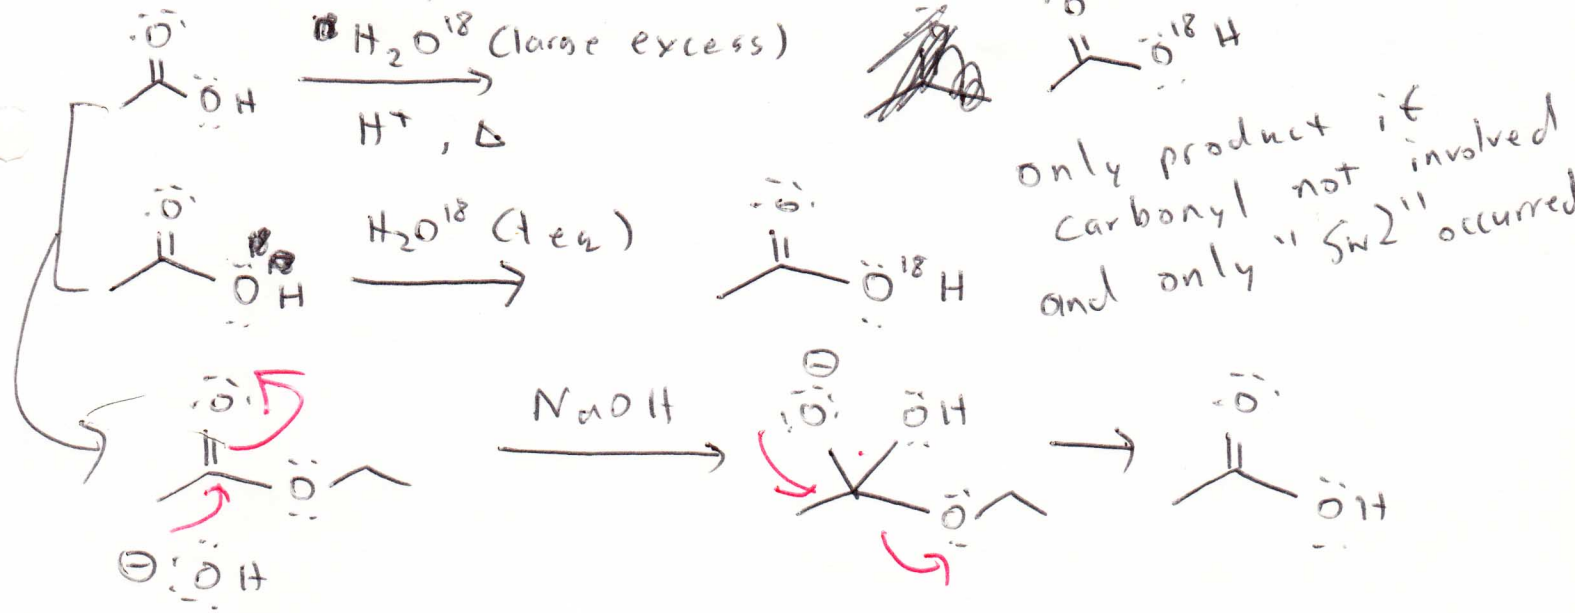 H₂O¹⁸ (large excess)
H⁺, Δ
O
OH
O
O¹⁸H
only product if
carbonyl not involved
and only "SN2" occurred
H₂O¹⁸ (1 eq)
O
OH
O
O¹⁸H
NaOH
O
O
⊖ OH
⊖
O OH
O
O
OH